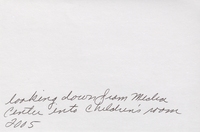 looking down from Media
Center into Children's room
2005